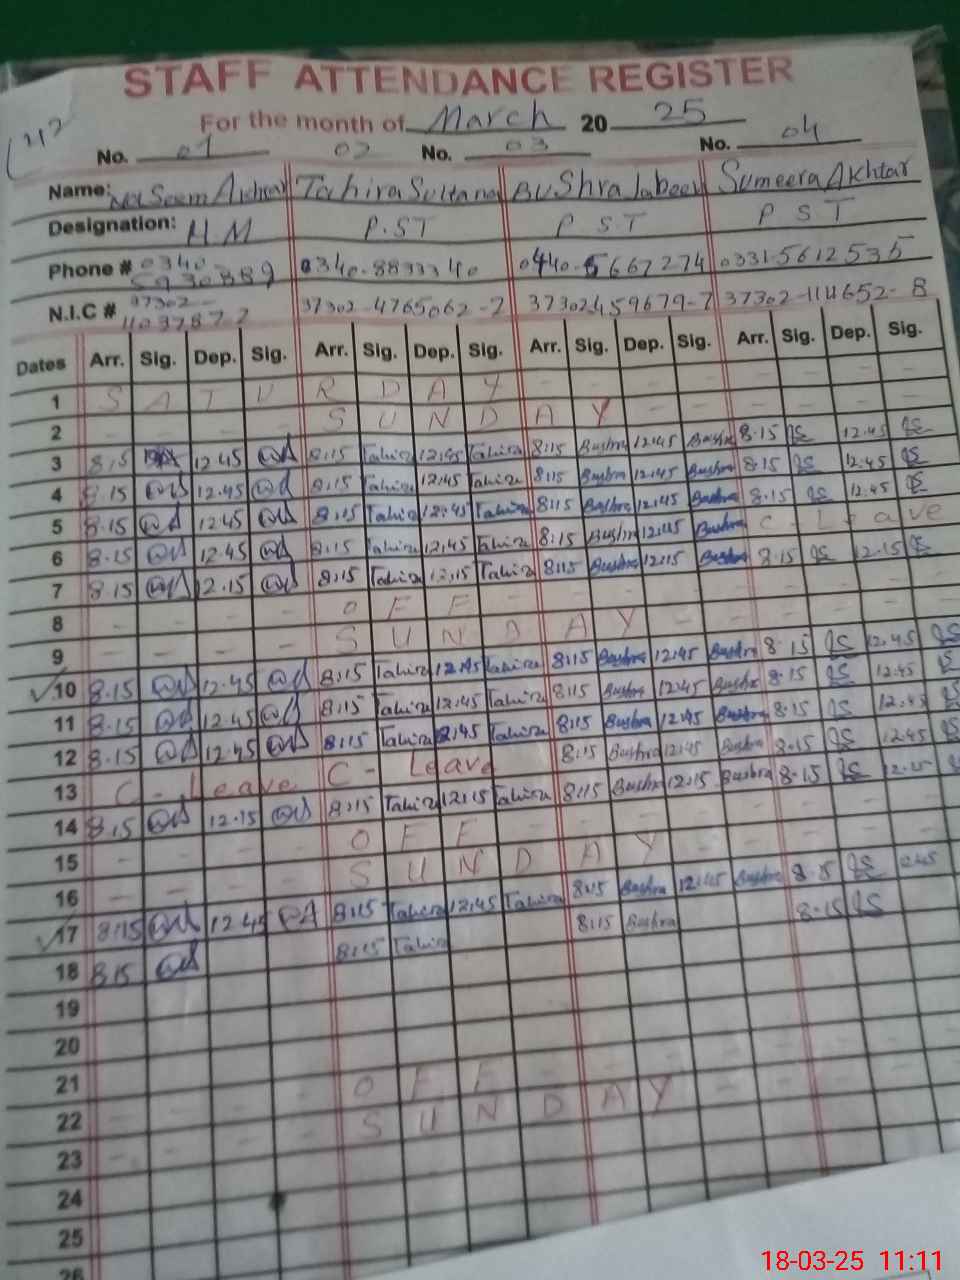 STAFF ATTENDANCE REGISTER
For the month of March 20 25
No. 01 02 No. 03 No. 04
Name: Naseem Akhtar Tahira Sultana Bushra Jabeen Sumeera Akhtar
Designation: H.M P.ST P S T P S T
Phone # 0340 5930889 0340-8833340 0440-5667274 0331-5612535
N.I.C # 37302- 37302-4765062-2 37302459679-7 37302-114652-8
Dates Arr. Sig. Dep. Sig. Arr. Sig. Dep. Sig. Arr. Sig. Dep. Sig. Arr. Sig. Dep. Sig.
1 S A T U R D A Y - - - - - -
2 - - - - S U N D A Y - - - - -
3 8.15 12.45 8:15 Tahira 12:45 Tahira 8:15 Bushra 12:45 Bushra 8.15 12.45
4 8.15 12.45 8:15 Tahira 12:45 Tahira 8:15 Bushra 12:45 Bushra 8.15 12.45
5 8.15 12.45 8:15 Tahira 12:45 Tahira 8:15 Bushra 12:45 Bushra 8.15 12.45
6 8.15 12.45 8:15 Tahira 12:45 Tahira 8:15 Bushra 12:45 Bushra C - Leave
7 8.15 12.15 8:15 Tahira 12:15 Tahira 8:15 Bushra 12:15 Bushra 8.15 12.15
8 - - - - O F F - - - - - - - -
9 - - - - S U N D A Y - - - - -
10 8.15 12.45 8:15 Tahira 12:45 Tahira 8:15 Bushra 12:45 Bushra 8.15 12.45
11 8.15 12.45 8:15 Tahira 12:45 Tahira 8:15 Bushra 12:45 Bushra 8.15 12.45
12 8.15 12.45 8:15 Tahira 12:45 Tahira 8:15 Bushra 12:45 Bushra 8.15 12.45
13 C - Leave C - Leave 8:15 Bushra 12:45 Bushra 8.15 12.45
14 8.15 12.15 8:15 Tahira 12:15 Tahira 8:15 Bushra 12:15 Bushra 8.15
15 - - - - O F F - - - - - - - -
16 - - - - S U N D A Y - - - - -
17 8:15 12.45 8:15 Tahira 12:45 Tahira 8:15 Bushra 12:45 Bushra 8.15
18 8.15 8:15 Tahira 8:15 Bushra 8.15
19
20
21 O F F
22 S U N D A Y
23
24
25
26
18-03-25 11:11